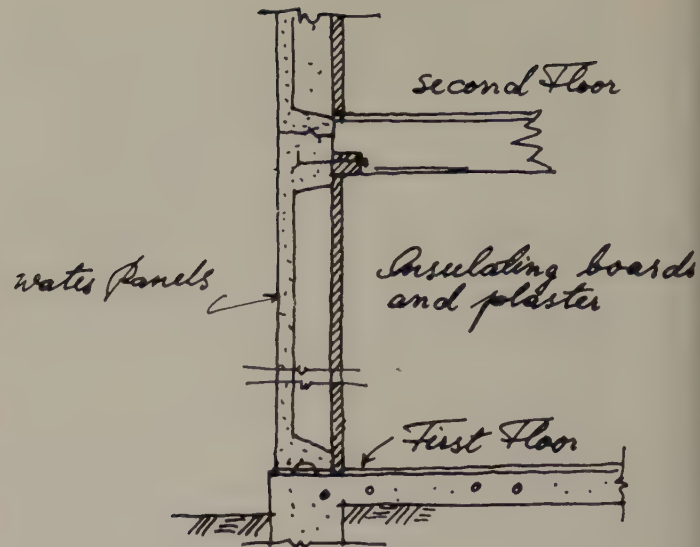 second Floor
water panels
Insulating boards
and plaster
First Floor